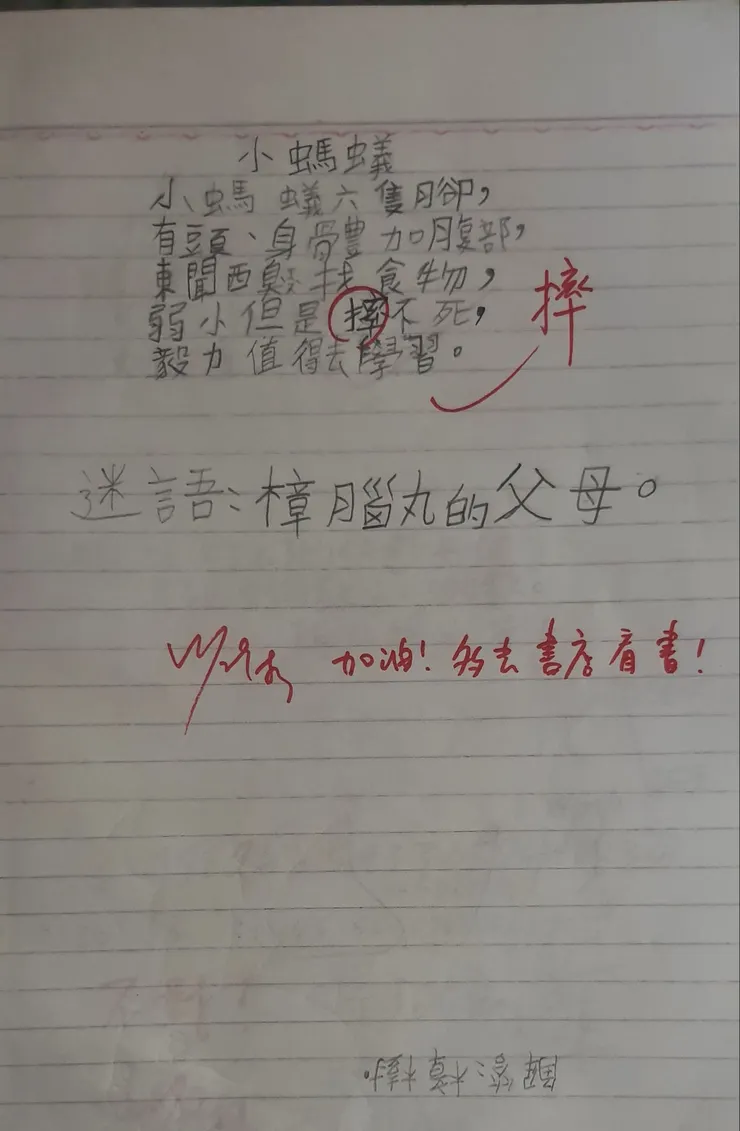 小螞蟻
小螞蟻六隻腳，
有頭、身體加腹部，
東聞西臭找食物，
弱小但是摔不死，
毅力值得去學習。
摔
迷語：樟腦丸的父母。
加油！多去書店看書！
解答：樟樹。